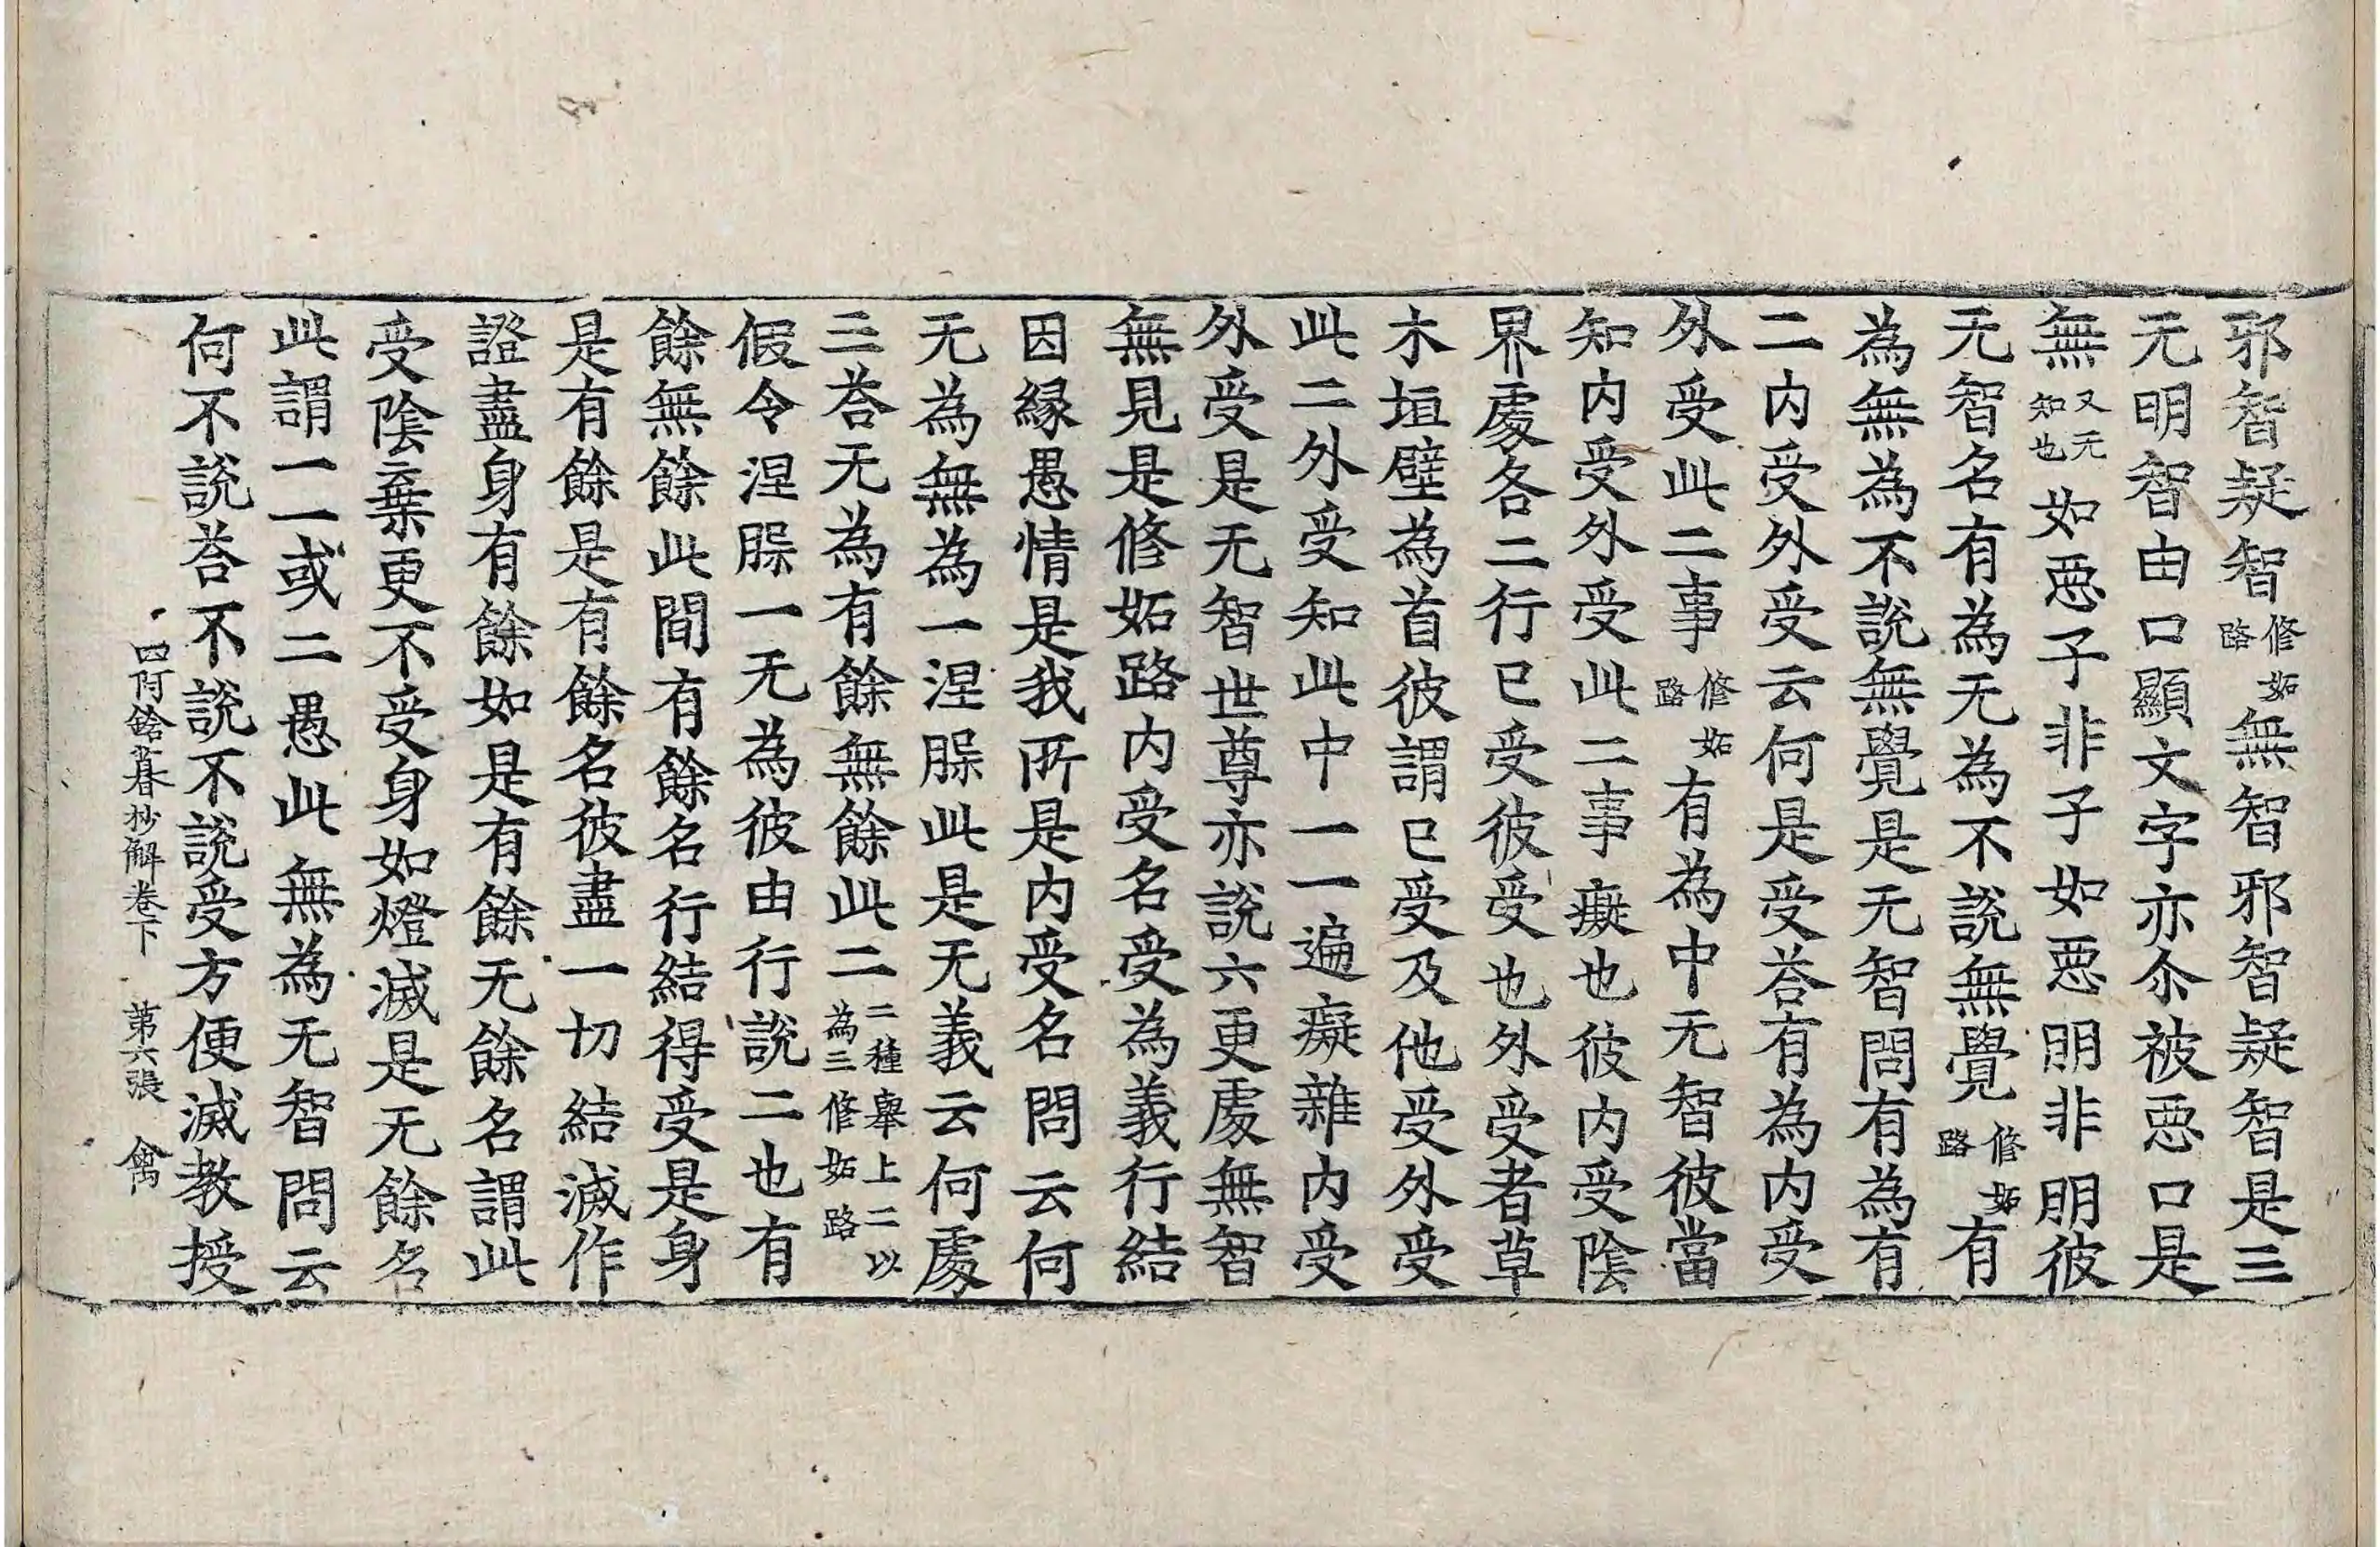 邪智疑智修妬路無智邪智疑智是三
无明智由口顯文字亦尒被惡口是
無又无知也如惡子非子如惡明非明彼
无智名有為无為不說無覺修妬路有
為無為不說無覺是无智問有為有
二內受外受云何是受荅有為內受
外受此二事修妬路有為中无智彼當
知內受外受此二事癡也彼內受陰
界處各二行已受彼受也外受者草
木垣壁為首彼謂已受及他受外受
此二外受知此中一一遍癡雜內受
外受是无智世尊亦說六更處無智
無見是修妬路內受名受為義行結
因緣愚情是我所是內受名問云何
无為無為一涅槃此是无義云何處
三荅无為有餘無餘此二二種舉上二以為三修妬路
假令涅槃一无為彼由行說二也有
餘無餘此間有餘名行結得受是身
是有餘是有餘名彼盡一切結滅作
證盡身有餘如是有餘无餘名謂此
受陰棄更不受身如燈滅是无餘名
此謂一一或二愚此無為无智問云
何不說荅不說不說受方便滅教授
四阿鋡暮抄解卷下　第六張　禽